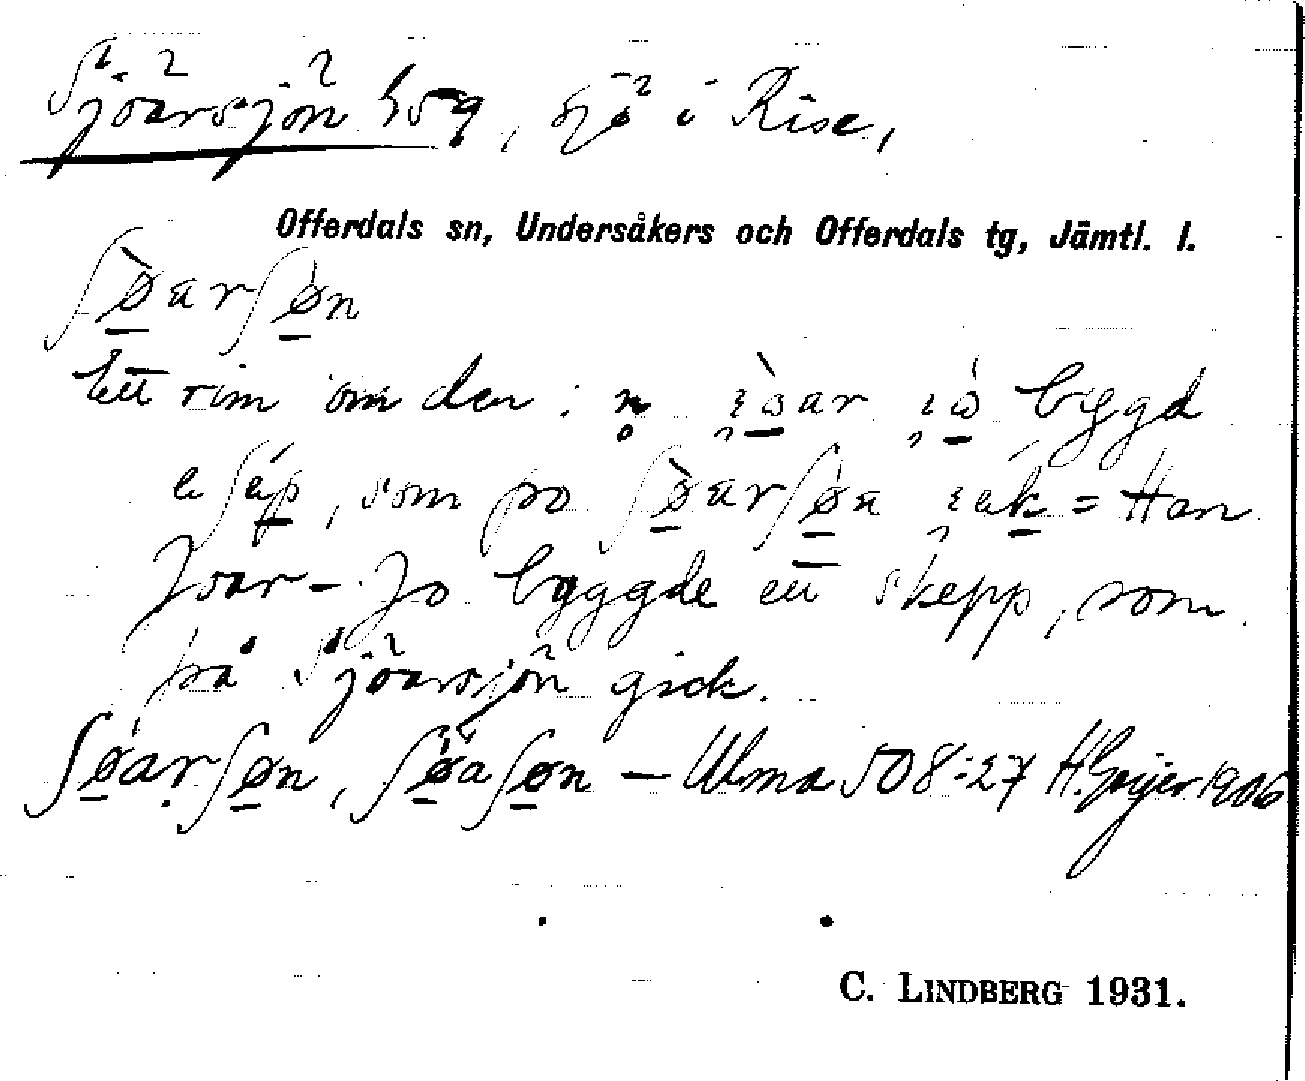 Sjöarsjön 459, sjö i Rise,
Offerdals sn, Undersåkers och Offerdals tg, Jämtl. l.
ʃø̀arʃøn
Ett rim om den: bygd
som po ʃø̀arʃøn = Han
Joar-Jo byggde ett skepp, som
på Sjöarsjön gick.
ʃøarʃøn, ʃøaʃøn — Ulma 508:27 H. Geijer 1906
C. LINDBERG 1931.